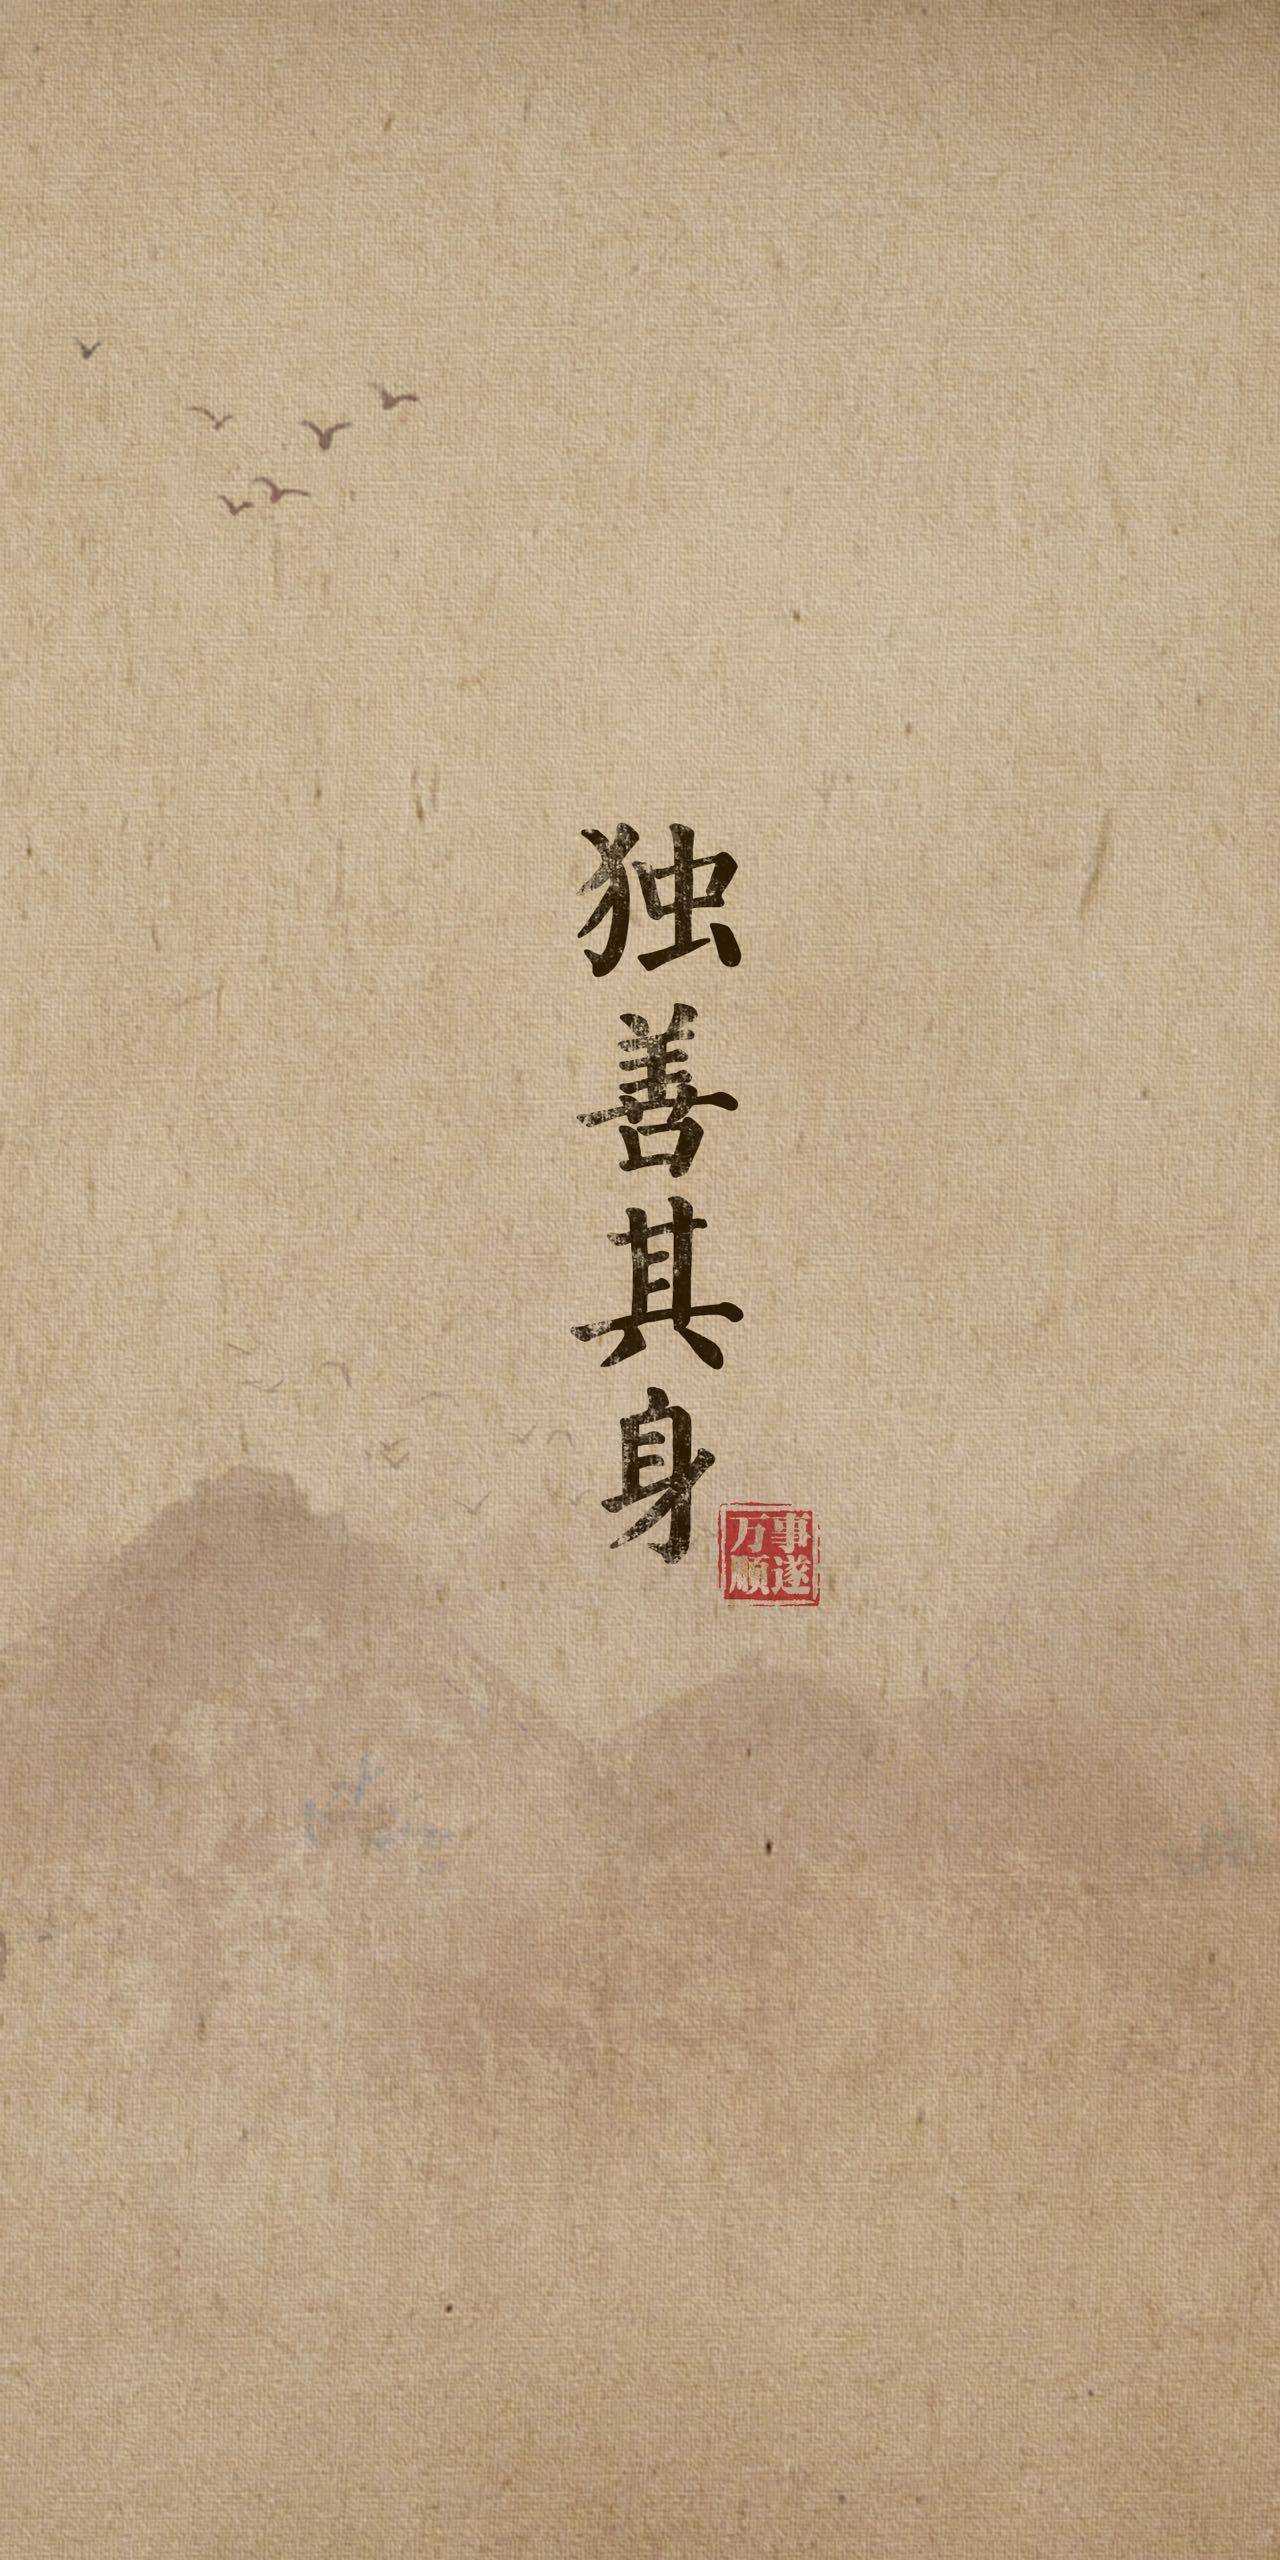 独善其身
万事
顺遂